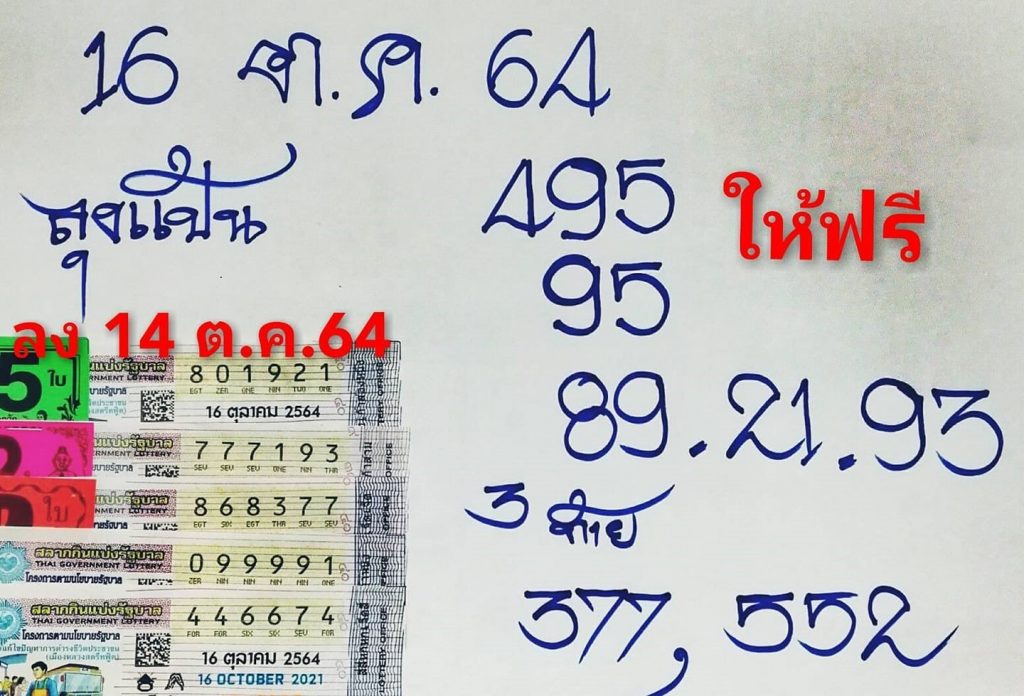 16 ต.ค. 64
ลุงแป้น
495
ให้ฟรี
95
ลง 14 ต.ค.64
89.21.93
3 ท้าย
377, 552
5 ใบ
สลากกินแบ่งรัฐบาล
GOVERNMENT LOTTERY
801921
EGT ZER ONE NIN TWO ONE
16 ตุลาคม 2564
กินแบ่งรัฐบาล
GOVERNMENT LOTTERY
777193
SEV SEV SEV ONE NIN THR
ใบ
แบ่งรัฐบาล
868377
EGT SIX EGT THR SEV SEV
สลากกินแบ่งรัฐบาล
THAI GOVERNMENT LOTTERY
โครงการตามนโยบายรัฐบาล
099991
ZER NIN NIN NIN NIN ONE
สลากกินแบ่งรัฐบาล
THAI GOVERNMENT LOTTERY
โครงการตามนโยบายรัฐบาล
446674
FOR FOR SIX SIX SEV FOR
16 ตุลาคม 2564
16 OCTOBER 2021